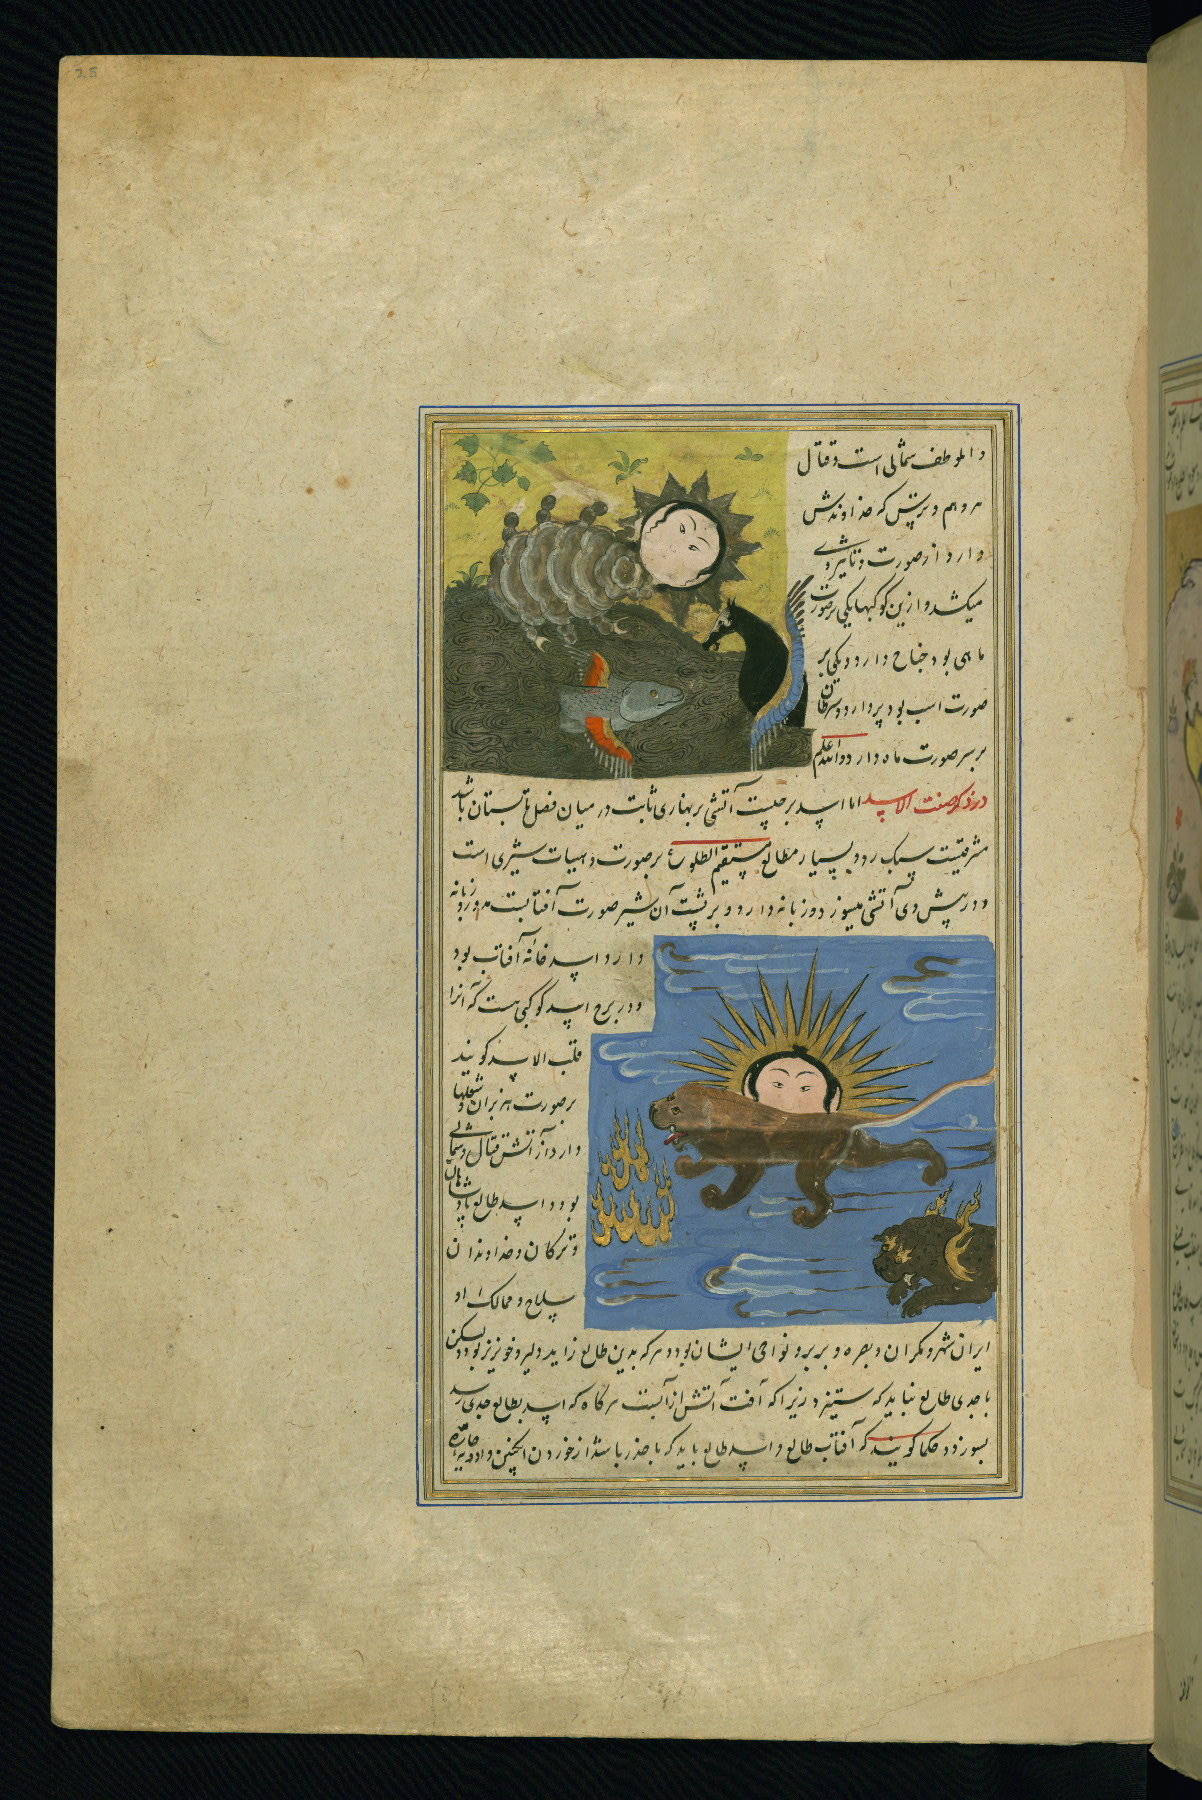 25
و الموطف شمالی است و قتال
هر و هم و برتپش که خداوندش
دارد از صورت و تاثیر وی
میکشد و ازین کوکبها یکی بر صورت
ماهی بود جناح دارد و یکی بر
صورت اسب بود پر دارد و سرطان
بر سر صورت ماه دارد والله اعلم
در ذکر صفت الاسد اما اسد برجیست آتشی بر بهاری ثابت در میان فصل تابستان باشد
مشرقیست سبک رو و بسیار مطالع مستقیم الطلوع بر صورت و هیات شیری است
و در پیش وی آتشی میسوزد و زبانه دارد و بر پشت آن شیر صورت آفتابست مدور و زبانه
دارد و اسد خانه آفتاب بود
و در برج اسد کوکبی هست که آنرا
قلب الاسد کویند
بر صورت هزبران و شعلها
دارد از آتش قتال و شمالی
بود و اسد طالع پادشاهان
و ترکان و خداوندان
سلاح و ممالک او
ایران شهر و مکران و بصره و بربر و نواحی ایشان بود و هر که بدین طالع زاید دلیر و خونریز بود و لیکن
با جدی طالع نباید که ستیزد زیرا که آفت آتش از آبست هر کاه که اسد بطالع جدی رسد
بسوزد و حکما کویند که آفتاب طالع و اسد طالع باید که با حذر باشد از خوردن انجنین و ادویه حاره